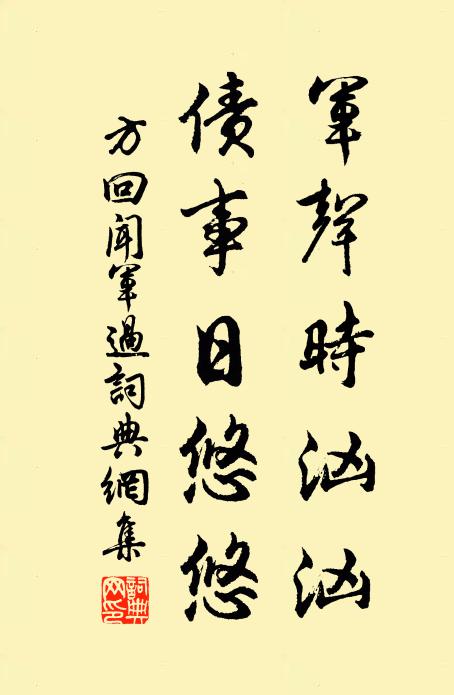 軍聲時洶洶
債事日悠悠
方回聞軍過詞典網集
詞典
网印